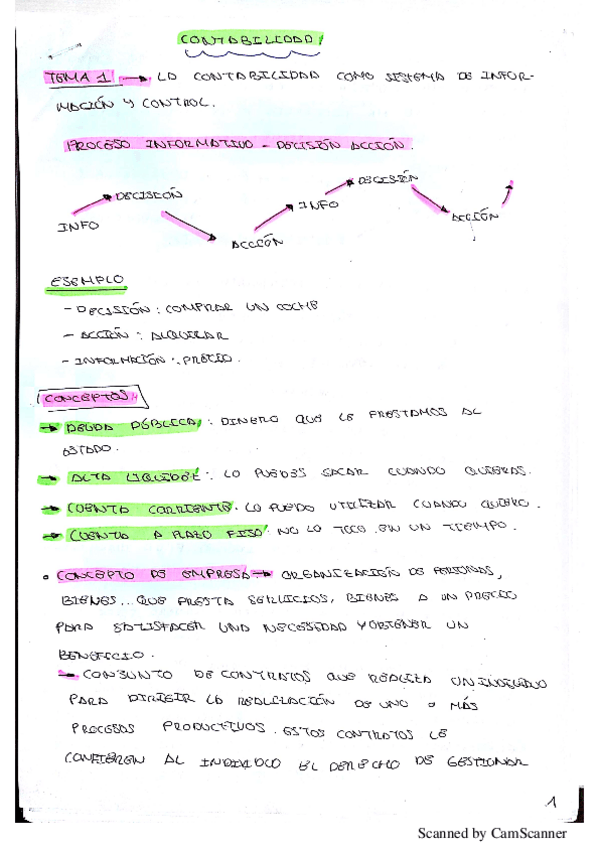 CONTABILIDAD
TEMA 1 → LA CONTABILIDAD COMO SISTEMA DE INFOR-
MACIÓN Y CONTROL.
PROCESO INFORMATIVO - DECISIÓN ACCIÓN.
INFO DECISIÓN ACCIÓN INFO DECISIÓN ACCIÓN
EJEMPLO
- DECISIÓN : COMPRAR UN COCHE
- ACCIÓN : ALQUILAR
- INFORMACIÓN : PRECIO.
CONCEPTOS
→ DEUDA PÚBLICA : DINERO QUE LE PRESTAMOS AL
ESTADO.
→ ALTA LIQUIDEZ : LO PUEDES SACAR CUANDO QUIERAS.
→ CUENTA CORRIENTE : LO PUEDO UTILIZAR CUANDO QUIERO.
→ CUENTA A PLAZO FIJO : NO LO TOCO EN UN TIEMPO.
• CONCEPTO DE EMPRESA → ORGANIZACIÓN DE PERSONAS,
BIENES... QUE PRESTA SERVICIOS, BIENES A UN PRECIO
PARA SATISFACER UNA NECESIDAD Y OBTENER UN
BENEFICIO.
→ CONJUNTO DE CONTRATOS QUE REALIZA UN INDIVIDUO
PARA DIRIGIR LA REALIZACIÓN DE UNO O MÁS
PROCESOS PRODUCTIVOS. ESTOS CONTRATOS LE
CONFIEREN AL INDIVIDUO EL DERECHO DE GESTIONAR
1
Scanned by CamScanner